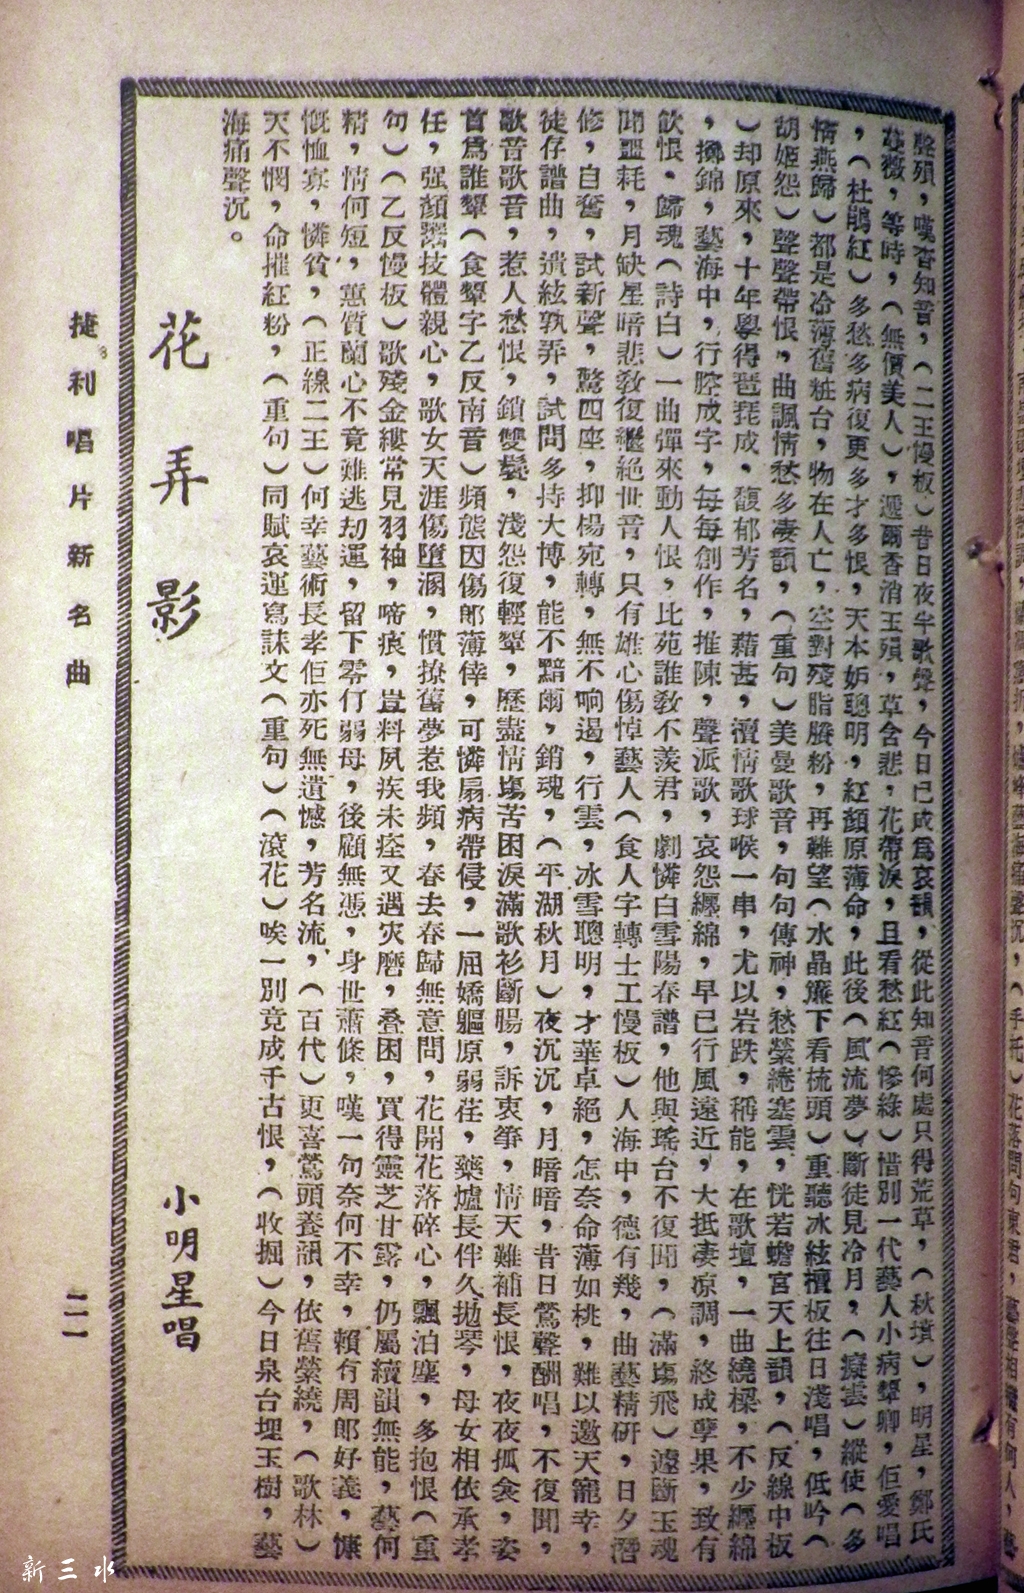 聲殞，嘆杳知音，（二王慢板）昔日夜半歌聲，今日已成爲哀韻，從此知音何處只得荒草，（秋墳），明星，鄭氏
薔薇，等時，（無價美人），遽爾香消玉殞，草含悲，花帶淚，且看愁紅（慘綠）惜別一代藝人小病顰卿，佢愛唱
，（杜鵑紅）多愁多病復更多才多恨，天本妒聰明，紅顏原薄命，此後（風流夢）斷徒見冷月，（癡雲）縱使（多
情燕歸）都是冷薄舊粧台，物在人亡，空對殘脂賸粉，再難望（水晶簾下看梳頭）重聽冰絃檀板往日淺唱，低吟（
胡姬怨）聲聲帶恨，曲諷情愁多凄韻，（重句）美曼歌音，句句傳神，愁縈綣塞雲，恍若蟾宮天上韻，（反線中板
）却原來，十年學得琵琶成，馥郁芳名，藉甚，濳情歌球喉一串，尤以岩跌，稱能，在歌壇，一曲繞樑，不少纏綿
，擲錦，藝海中，行腔成字，每每創作，推陳，聲派歌，哀怨纏綿，早已行風遠近，大抵凄凉調，終成孽果，致有
飲恨．歸魂（詩白）一曲彈來動人恨，比苑誰敎不羨君，劇憐白雪陽春譜，他與瑤台不復聞，（滿塲飛）遽斷玉魂
聞噩耗，月缺星暗悲敎復繼絕世音，只有雄心傷悼藝人（食人字轉士工慢板）人海中，德有幾，曲藝精研，日夕潛
修，自奮，試新聲，驚四座，抑楊宛轉，無不响遏，行雲，冰雪聰明，才華卓絕，怎奈命薄如桃，難以邀天寵幸，
徒存譜曲，遺絃孰弄，試問多持大博，能不黯爾，銷魂，（平湖秋月）夜沉沉，月暗暗，昔日鶯聲酬唱，不復聞，
歌音歌音，惹人愁恨，鎖雙鬟，淺怨復輕顰，歷盡情塲苦困淚滿歌衫斷腸，訴衷箏，情天難補長恨，夜夜孤衾，姿
首爲誰顰（食顰字乙反南音）頻態因傷郎薄倖，可憐扇病帶侵，一屈嬌軀原弱荏，藥爐長伴久拋琴，母女相依承孝
任，强顏鬻技體親心，歌女天涯傷墮溷，慣撩舊夢惹我頻，春去春歸無意問，花開花落碎心，飄泊塵，多抱恨（重
句）（乙反慢板）歌殘金縷常見羽袖，啼痕，豈料夙疾未痊又遇灾磨，叠困，買得靈芝甘露，仍屬續韻無能，藝何
精，情何短，蕙質蘭心不竟難逃劫運，留下零仃弱母，後顧無憑，身世蕭條，嘆一句奈何不幸，賴有周郎好義，慷
慨恤寡，憐貧，（正線二王）何幸藝術長孝佢亦死無遺憾，芳名流，（百代）更喜鶯頭養韻，依舊縈繞，（歌林）
天不憫，命摧紅粉，（重句）同賦哀運寫誄文（重句）（滾花）唉一別竟成千古恨，（收掘）今日泉台埋玉樹，藝
海痛聲沉。
花弄影　小明星唱
捷利唱片新名曲
二一
新三水